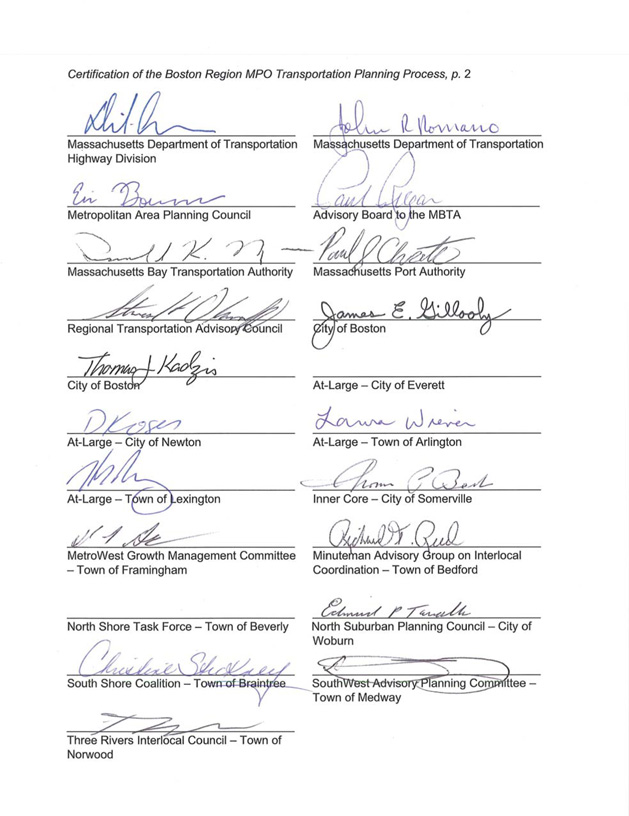 Certification of the Boston Region MPO Transportation Planning Process, p. 2
John R Romano
Massachusetts Department of Transportation
Highway Division
Massachusetts Department of Transportation
Paul Regan
Metropolitan Area Planning Council
Advisory Board to the MBTA
Massachusetts Bay Transportation Authority
Massachusetts Port Authority
James E. Gillooly
Regional Transportation Advisory Council
City of Boston
Thomas J Kadzis
City of Boston
At-Large – City of Everett
D Koses
Laura Wiener
At-Large – City of Newton
At-Large – Town of Arlington
At-Large – Town of Lexington
Inner Core – City of Somerville
Richard F. Reed
MetroWest Growth Management Committee
– Town of Framingham
Minuteman Advisory Group on Interlocal
Coordination – Town of Bedford
Edmund P
North Shore Task Force – Town of Beverly
North Suburban Planning Council – City of
Woburn
Christine Stickney
South Shore Coalition – Town of Braintree
SouthWest Advisory Planning Committee –
Town of Medway
Three Rivers Interlocal Council – Town of
Norwood